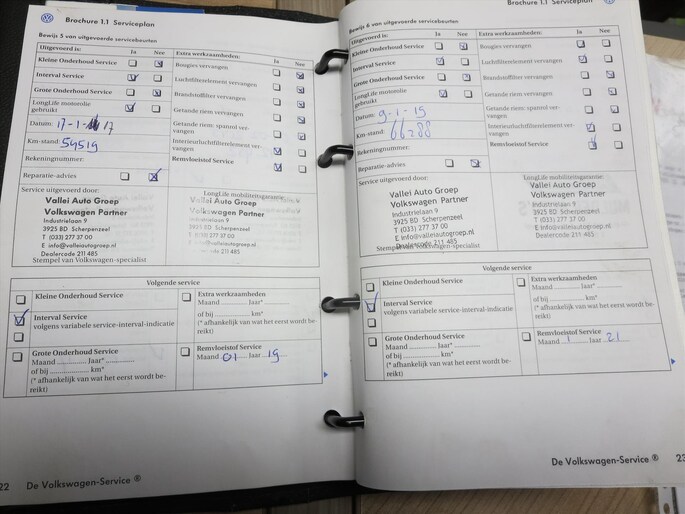 Brochure 1.1 Serviceplan
Bewijs 5 van uitgevoerde servicebeurten
Uitgevoerd is: Ja Nee
Kleine Onderhoud Service
Interval Service
Grote Onderhoud Service
LongLife motorolie gebruikt
Datum: 17-1-17
Km-stand: 59519
Rekeningnummer:
Reparatie-advies
Extra werkzaamheden: Ja Nee
Bougies vervangen
Luchtfilterelement vervangen
Brandstoffilter vervangen
Getande riem vervangen
Getande riem: spanrol ver-
vangen
Interieurluchtfilterelement ver-
vangen
Remvloeistof Service
Service uitgevoerd door:
Vallei Auto Groep
Volkswagen Partner
Industrielaan 9
3925 BD Scherpenzeel
T (033) 277 37 00
E info@valleiautogroep.nl
Dealercode 211 485
Stempel van Volkswagen-specialist
LongLife mobiliteitsgarantie:
Vallei Auto Groep
Volkswagen Partner
Volgende service
Kleine Onderhoud Service
Interval Service
volgens variabele service-interval-indicatie
Grote Onderhoud Service
Maand ........... Jaar* ...........
of bij ........... km*
(* afhankelijk van wat het eerst wordt be-
reikt)
Extra werkzaamheden
Maand ........... Jaar ...........
of bij ........... km*
(* afhankelijk van wat het eerst wordt be-
reikt)
Remvloeistof Service
Maand 01 Jaar 19
22 De Volkswagen-Service ®
Brochure 1.1 Serviceplan
Bewijs 6 van uitgevoerde servicebeurten
Uitgevoerd is: Ja Nee
Kleine Onderhoud Service
Interval Service
Grote Onderhoud Service
LongLife motorolie
gebruikt
Km-stand: 66288
Rekeningnummer:
Reparatie-advies
Extra werkzaamheden: Ja Nee
Bougies vervangen
Luchtfilterelement vervangen
Brandstoffilter vervangen
Getande riem vervangen
Getande riem: spanrol ver-
vangen
Interieurluchtfilterelement ver-
vangen
Remvloeistof Service
Service uitgevoerd door:
Vallei Auto Groep
Volkswagen Partner
Industrielaan 9
3925 BD Scherpenzeel
T (033) 277 37 00
E info@valleiautogroep.nl
Dealercode 211 485
LongLife mobiliteitsgarantie:
Vallei Auto Groep
Volkswagen Partner
Industrielaan 9
3925 BD Scherpenzeel
T (033) 277 37 00
E info@valleiautogroep.nl
Dealercode 211 485
Volgende service
Kleine Onderhoud Service
Interval Service
volgens variabele service-interval-indicatie
Grote Onderhoud Service
Maand ........... Jaar* ...........
of bij ........... km*
(* afhankelijk van wat het eerst wordt be-
reikt)
Extra werkzaamheden
Maand ........... Jaar ...........
of bij ........... km*
(* afhankelijk van wat het eerst wordt be-
reikt)
Remvloeistof Service
Maand 1 Jaar 21
De Volkswagen-Service ® 23